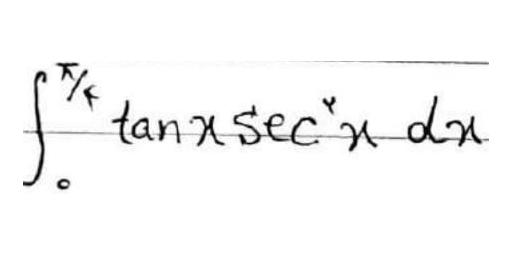 ∫₀^{π/4} tan x sec⁴x dx